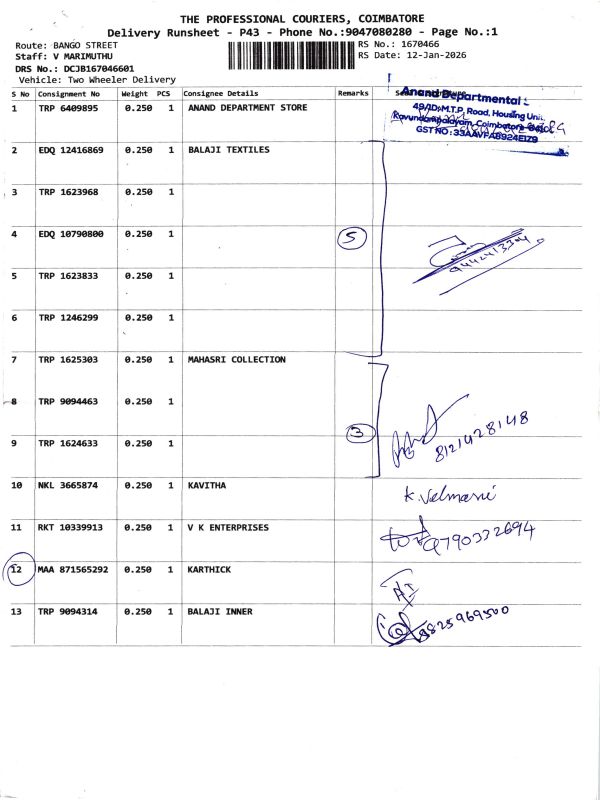 THE PROFESSIONAL COURIERS, COIMBATORE
Delivery Runsheet - P43 - Phone No.:9047080280 - Page No.:1
Route: BANGO STREET RS No.: 1670466
Staff: V MARIMUTHU RS Date: 12-Jan-2026
DRS No.: DCJB167046601
Vehicle: Two Wheeler Delivery
S No Consignment No Weight PCS Consignee Details Remarks
Anand Departmental
49/D, M.T.P. Road, Housing Unit,
Coimbatore
GST NO : 33AAVFA8924E1Z9
1 TRP 6409895 0.250 1 ANAND DEPARTMENT STORE
2 EDQ 12416869 0.250 1 BALAJI TEXTILES
3 TRP 1623968 0.250 1
4 EDQ 10790800 0.250 1 5
5 TRP 1623833 0.250 1
6 TRP 1246299 0.250 1
7 TRP 1625303 0.250 1 MAHASRI COLLECTION
8 TRP 9094463 0.250 1
9 TRP 1624633 0.250 1 3 8121428148
10 NKL 3665874 0.250 1 KAVITHA K. Velmani
11 RKT 10339913 0.250 1 V K ENTERPRISES 9790332694
12 MAA 871565292 0.250 1 KARTHICK
13 TRP 9094314 0.250 1 BALAJI INNER 9825969500